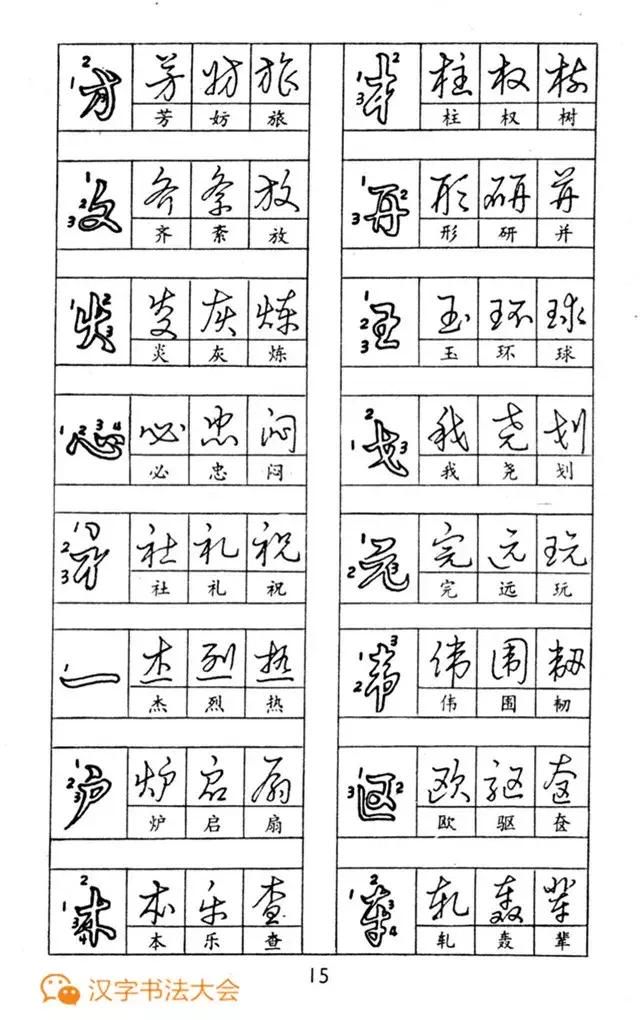 方 芳 妨 旅
芳 妨 旅
文 齐 紊 放
齐 紊 放
火 炎 灰 炼
炎 灰 炼
心 必 忠 闷
必 忠 闷
社 礼 祝
社 礼 祝
杰 烈 热
杰 烈 热
户 炉 启 扇
炉 启 扇
本 乐 查
本 乐 查
柱 权 树
柱 权 树
形 研 并
形 研 并
王 玉 环 球
玉 环 球
戈 我 尧 划
我 尧 划
元 完 远 玩
完 远 玩
韦 伟 围 韧
伟 围 韧
区 欧 驱 奁
欧 驱 奁
车 轧 轰 辈
轧 轰 辈
15
汉字书法大会